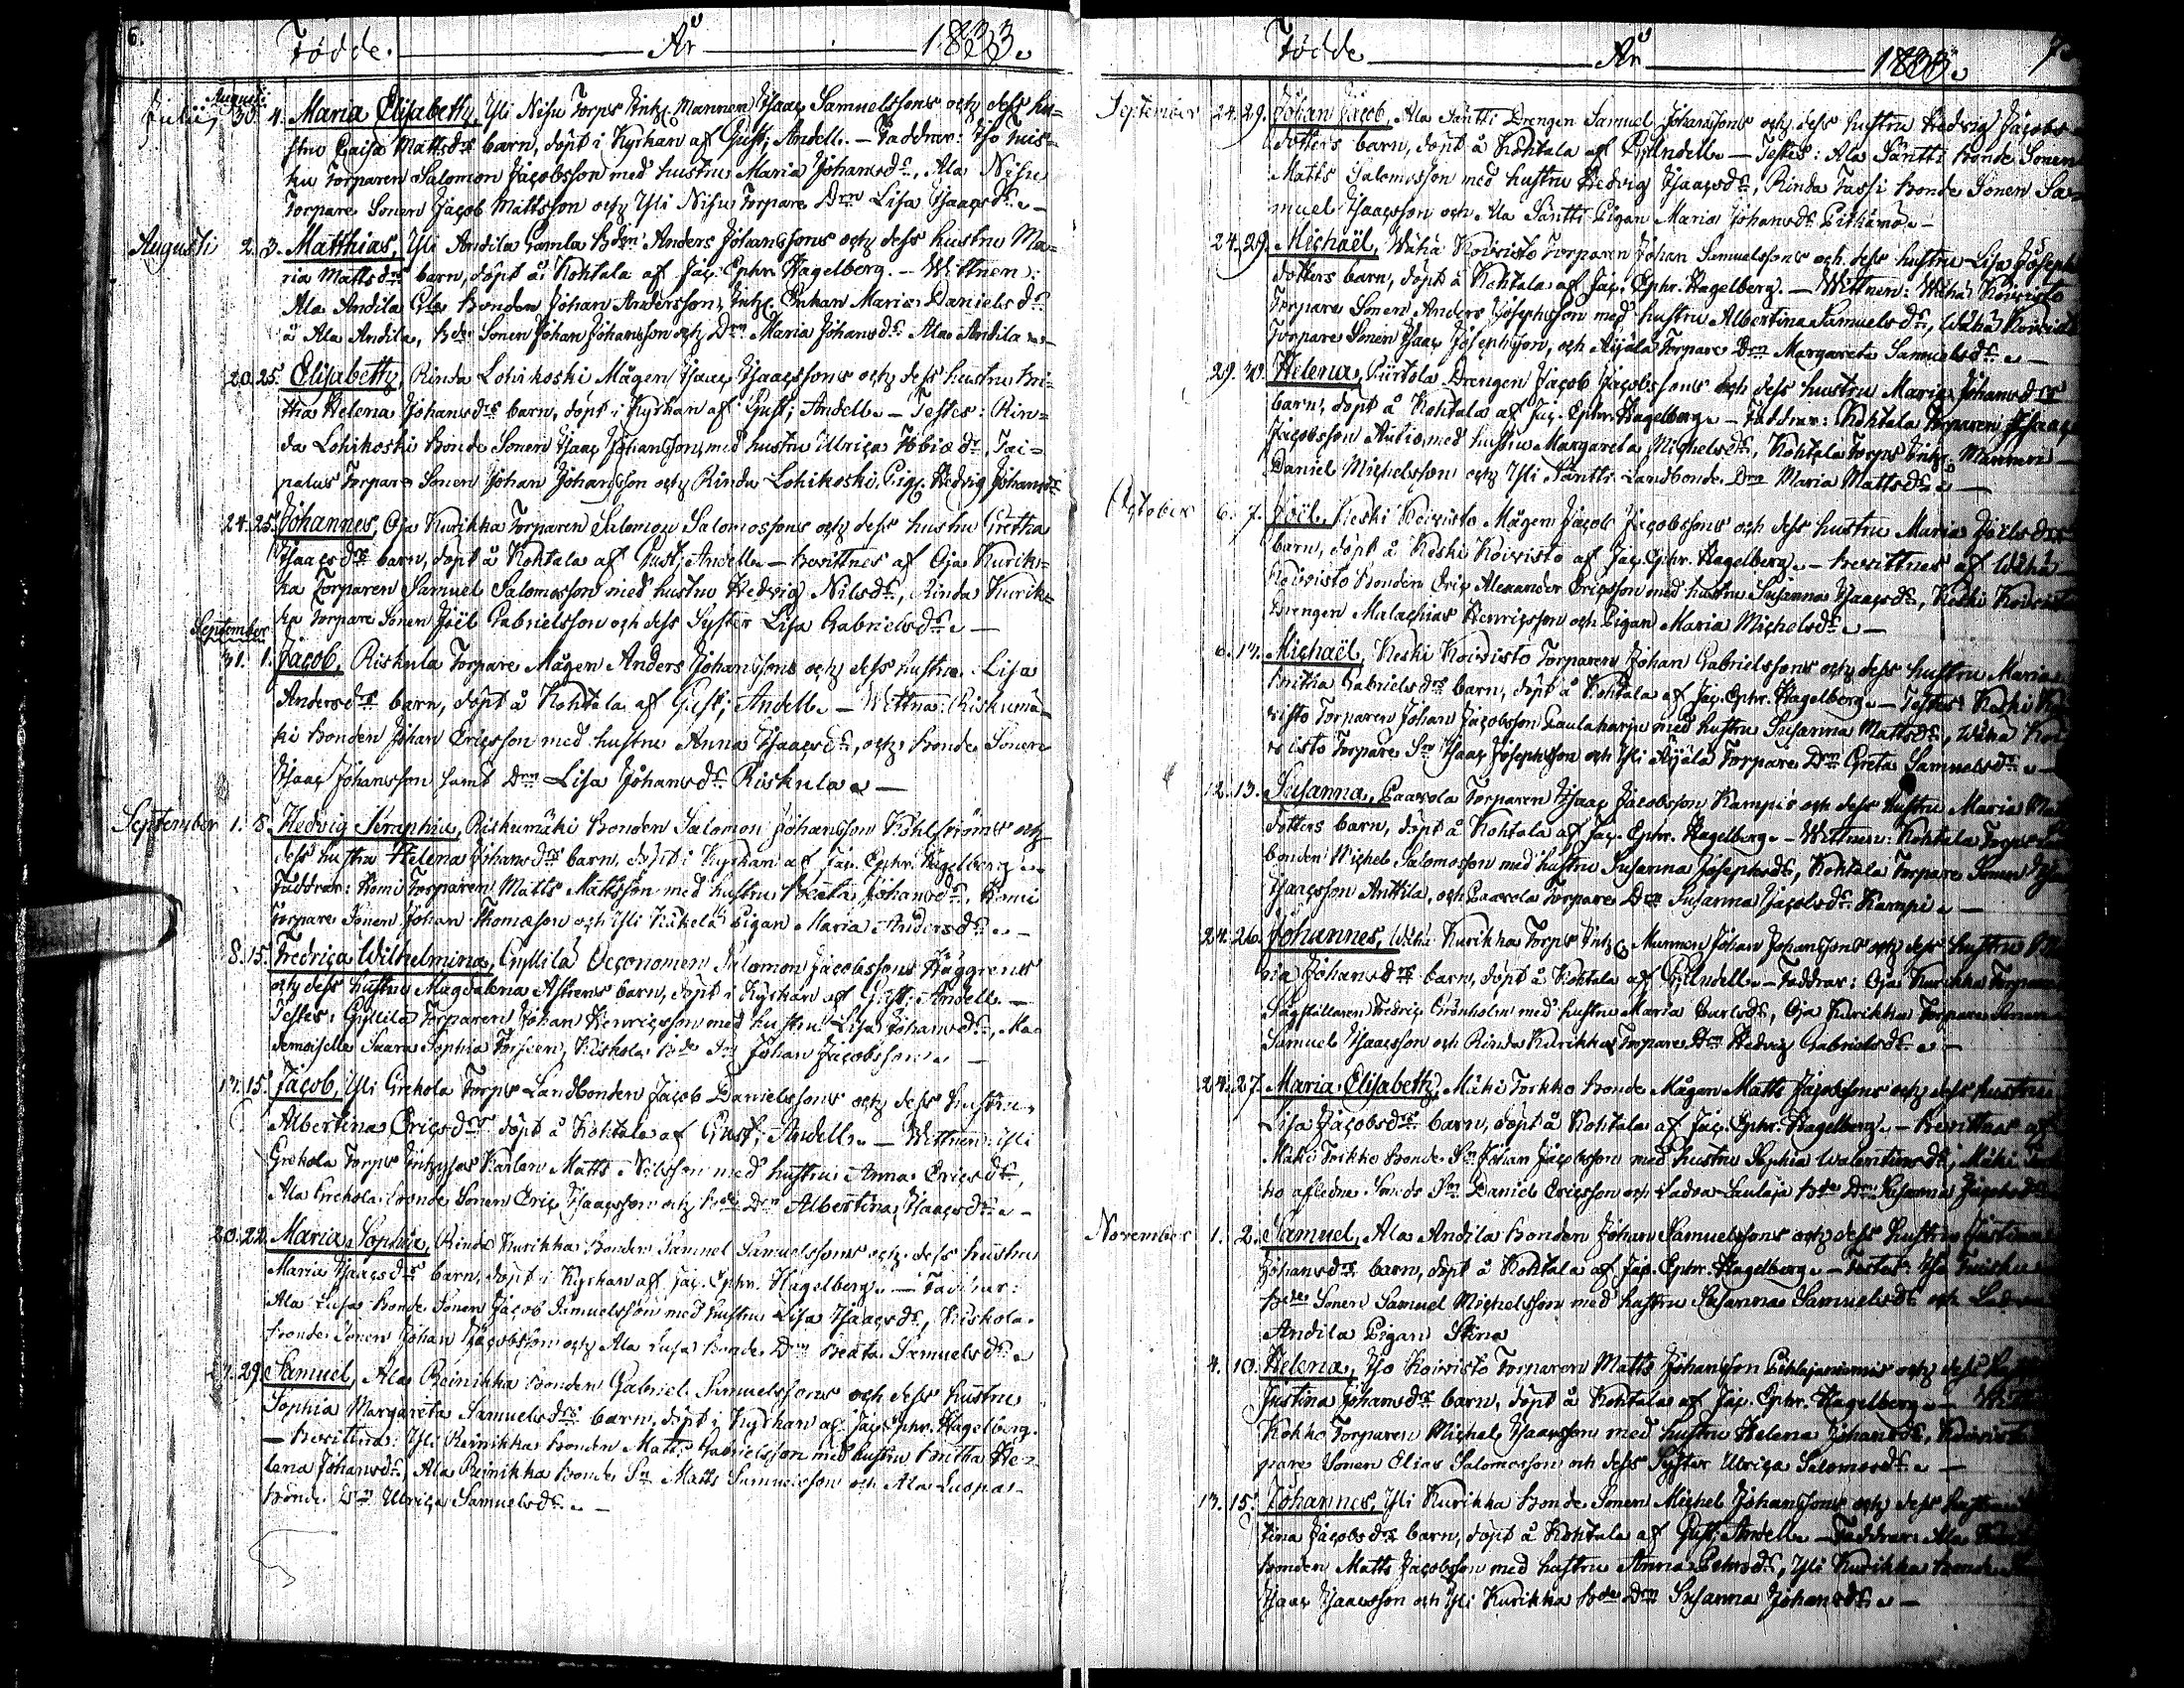 6.
Födde. År 1833.
Julii 30. Augusti 4. Maria Elisabeth, Yli Nisu Torps Inhs. Mannen Isaac Samuelssons och dess hu-
stru Caisa Mattsdrs barn, döpt i Kyrkan af Gust; Andell. – Faddrar: Iso Tuis-
ku Torparen Salomon Jacobsson med hustru Maria Johansdr, Ala Nisu
Torpare Sonen Jacob Mattsson och Yli Nisu Torpare Drn Lisa Isaacsdr. –
Augusti 2. 3. Matthias, Yli Andila Gamla Bdn Anders Johanssons och dess hustru Ma-
ria Mattsdrs barn, döpt å Kohtala af Jac. Ephr. Hagelberg. – Wittnen:
Ala Andila Gla Bonden Johan Andersson, Inhs. Enkan Maria Danielsdr
å Ala Andila, Bde Sonen Johan Johansson och Drn Maria Johansdr Ala Andila. –
20. 25. Elisabeth, Rinda Lohikoski Mågen Isaac Isaacssons och dess hustru Bri-
tha Helena Johansdrs barn, döpt i Kyrkan af Gust; Andell. – Testes: Rin-
da Lohikoski Bonde Sonen Isaac Johansson, med hustru Ulrica Tobiædr, Tai-
palus Torpare Sonen Johan Johansson och Rinda Lohikoski Pig. Hedvig Johansdr
24. 25. Johannes, Oja Kurikka Torparen Salomon Salomossons och dess hustru Gretha
Isaacsdrs barn, döpt å Kohtala af Gust; Andell. – Bevittnes af Oja Kurik-
ka Torparen Samuel Salomosson med hustru Hedvig Nilsdr, Rinda Kurik-
ka Torpare Sonen Joël Gabrielsson och dess Syster Lisa Gabrielsdr. –
31. September 1. Jacob, Riskula Torpare Mågen Anders Johanssons och dess hustru Lisa
Andersdrs barn, döpt å Kohtala af Gust; Andell. – Wittna: Riskumä-
ki Bonden Johan Ericsson med hustru Anna Isaacsdr, och Bonde Sonen
Isaac Johansson samt Drn Lisa Johansdr Riskula. –
September 1. 8. Hedvig Seraphia, Riskumäki Bonden Salomon Johansson Kohlströms och
dess hustru Helena Johansdrs barn, döpt i Kyrkan af Jac. Ephr. Hagelberg. –
Faddrar: Komi Torparen Matts Mattsson med hustru Beata Johansdr, Komi
Torpare Sonen Johan Thomæson och Yli Käkelä Pigan Maria Andersdr. –
8. 15. Fredrica Wilhelmina, Gyllilä Oeconomen Salomon Jacobssons Häggrens
och dess hustru Magdalena Astrens barn, döpt i Kyrkan af Gust; Andell. –
Testes: Gyllilä Torparen Johan Henricsson med hustru Lisa Johansdr, Ma-
demoiselle Saara Sophia Forseen, Kiskola Bde Sn Johan Jacobsson. –
13. 15. Jacob, Yli Grekola Torps Landbonden Jacob Danielssons och dess hustru
Albertina Ericsdrs döpt å Kohtala af Gust; Andell. – Wittnen: Yli
Grekola Torps Inhyses Karlen Matts Nilsson med hustru Anna Ericsdr,
Ala Grekola Bonde Sonen Eric Isaacsson och Bde Drn Albertina Isaacsdr. –
20. 22. Maria Sophia, Rinda Kurikka Bonden Samuel Samuelssons och dess hustru
Maria Isaacsdrs barn, döpt i Kyrkan af Jac. Ephr. Hagelberg. – Faddrar:
Ala Luopa Bonde Sonen Jacob Samuelsson med hustru Lisa Isaacsdr, Kiskola
Bonde Sonen Johan Jacobsson och Ala Luopa Bonde Drn Beata Samuelsdr.
27. 29. Samuel, Ala Reinikka Bonden Gabriel Samuelssons och dess hustru
Sophia Margareta Samuelsdrs barn, döpt i Kyrkan af Jac. Ephr. Hagelberg.
– Bevittna: Yli Reinikka Bonden Matts Gabrielsson med hustru Britha He-
lena Johansdr, Ala Reinikka Bonde Sn Matts Samuelsson och Ala Luopa
Bonde Drn Ulrica Samuelsdr. –
Födde År 1833. 7.
September 24. 29. Johan Jacob, Ala Säntti Drengen Samuel Johanssons och dess hustru Hedvig Jacobs
dotters barn, döpt å Kohtala af G; Andell. – Testes: Ala Säntti Bonde Sonen
Matts Salomosson med hustru Hedvig Isaacsdr, Rinda Jassi Bonde Sonen Sa-
muel Isaacsson och Ala Säntti Pigan Maria Johansdr Pitkämö. –
24. 29. Michaël, Wähä Koivisto Torparen Johan Samuelssons och dess hustru Lisa Joseph
dotters barn, döpt å Kohtala af Jac. Ephr. Hagelberg. – Wittnen: Wähä Koivisto
Torpare Sonen Anders Josephsson med hustru Albertina Samuelsdr, Wähä Koivisto
Torpare Sonen Isaac Josephsson, och Äijälä Torpare Drn Margareta Samuelsdr. –
29. 30. Helena, Piirtola Drengen Jacob Jacobssons och dess hustru Maria Johansdrs
barn, döpt å Kohtala af Jac. Ephr. Hagelberg. – Faddrar: Kohtala Torparen Isaac
Jacobsson Autio, med hustru Margareta Michelsdr, Kohtala Torps Inhs. Mannen
Daniel Michelsson och Yli Säntti Landbonde Drn Maria Mattsdr. –
October 6. 7. Joël, Keski Koivisto Mågen Jacob Jacobssons och dess hustru Maria Joelsdrs
barn, döpt å Keski Koivisto af Jac. Ephr. Hagelberg. – Bevittnes af Wähä
Koivisto Bonden Eric Alexander Ericsson med hustru Susanna Isaacsdr, Keski Koivisto
Drengen Malachias Henricsson och Pigan Maria Michelsdr. –
6. 13. Michaël, Keski Koivisto Torparen Johan Gabrielssons och dess hustru Maria
Britha Gabrielsdrs barn, döpt å Kohtala af Jac. Ephr. Hagelberg. – Testes: Keski
visto Torparen Johan Jacobsson Paulaharju med hustru Susanna Mattsdr, Wähä Koi
visto Torpare Sn Isaac Josephsson och Yli Äijälä Torpare Drn Greta Samuelsdr. –
12. 13. Susanna, Paavola Torparen Isaac Jacobsson Kampis och dess hustru Maria
dotters barn, döpt å Kohtala af Jac. Ephr. Hagelberg. – Wittnen: Kohtala Torps
bonden Michel Salomosson med hustru Susanna Josephsdr, Kohtala Torpare Sonen
Isaacsson Anttila, och Paavola Torpare Drn Susanna Jacobsdr Kampi. –
24. 26. Johannes, Wähä Kurikka Torps Inhs Mannen Johan Johanssons och dess hustru
ria Johansdrs barn, döpt å Kohtala af G; Andell. – Faddrar: Oja Kurikka Torpare
Sågställaren Fredric Grönholm med hustru Maria Carlsdr, Oja Kurikka Torpare Sonen
Samuel Isaacsson och Rinda Kurikka Torpare Drn Hedvig Gabrielsdr. –
24. 27. Maria Elisabeth, Mäki Torkko Bonde Mågen Matts Jacobssons och dess hustru
Lisa Jacobsdrs barn, döpt å Kohtala af Jac. Ephr. Hagelberg. – Bevittnas af
Mäki Torkko Bonde Sn Johan Jacobsson med hustru Sophia Walentinsdr, Mäki
ko afledne Bonde Sn Daniel Ericsson och Ladva Laulaja Bde Drn Susanna
November 1. 2. Samuel, Ala Andila Bonden Johan Samuelssons och dess hustru Justina
Johansdrs barn, döpt å Kohtala af Jac. Ephr. Hagelberg. – Testes: Iso Tuisku
Bde Sonen Samuel Michelsson med hustru Susanna Samuelsdr och
Andila Pigan Stina
4. 10. Helena, Iso Koivisto Torparen Matts Johansson Pihlajaniemis och dess
Justina Johansdrs barn, döpt å Kohtala af Jac. Ephr. Hagelberg. –
Kokko Torparen Michel Isaacsson med hustru Helena Johansdr, Koivisto
pare Sonen Elias Salomosson och dess Syster Ulrica Salomosdr. –
13. 15. Johannes, Yli Kurikka Bonde Sonen Michel Johanssons och dess hustru
tina Jacobsdrs barn, döpt å Kohtala af Gust; Andell. – Faddrar: Ala
bonden Matts Jacobsson med hustru Anna Pehrsdr, Yli Kurikka Bonde
Isaac Isaacsson och Yli Kurikka Bde Drn Susanna Johansdr. –